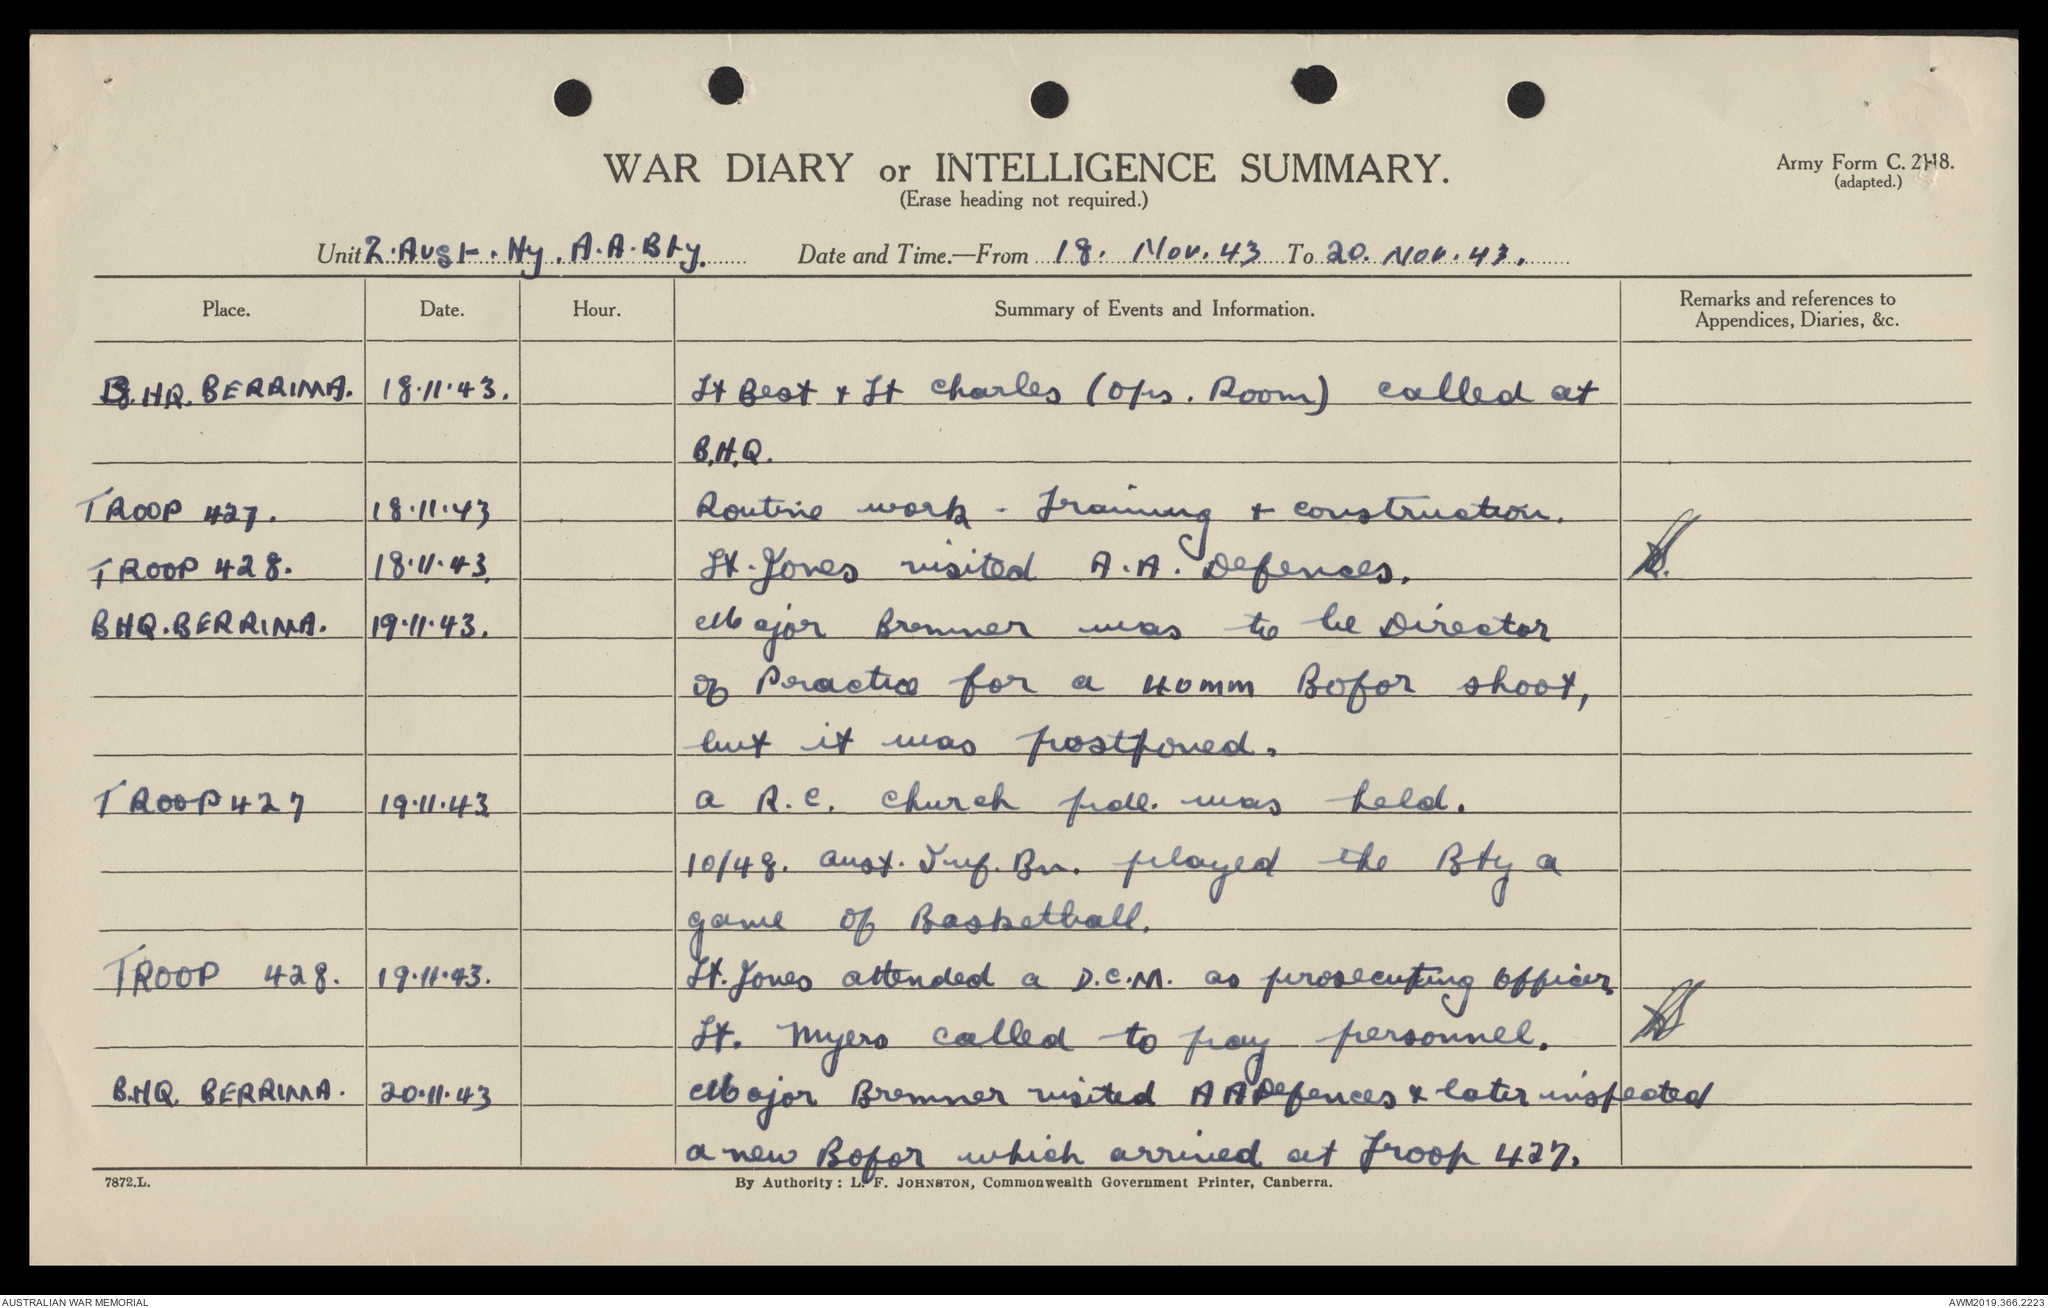 WAR DIARY or INTELLIGENCE SUMMARY.
(Erase heading not required.)
Army Form C. 2118.
(adapted.)
Unit 2. Aust. Hy. A.A. Bty. Date and Time.—From 18. Nov. 43 To 20. Nov. 43.
Place. Date. Hour. Summary of Events and Information. Remarks and references to
Appendices, Diaries, &c.
B.HQ. BERRIMA. 18.11.43. Lt Best + Lt Charles (Ops. Room) called at
B.H.Q.
TROOP 427. 18.11.43 Routine work - Training + construction.
TROOP 428. 18.11.43. Lt. Jones visited A.A. Defences.
BHQ. BERRIMA. 19.11.43. Major Bremner was to be Director
of Practice for a 40mm Bofor shoot,
but it was postponed.
TROOP 427 19.11.43 a R.C. church pde. was held.
10/48. Aust. Inf. Bn. played the Bty a
game of Basketball.
TROOP 428. 19.11.43. Lt. Jones attended a D.C.M. as prosecuting Officer
Lt. Myers called to pay personnel.
B.HQ. BERRIMA. 20.11.43 Major Bremner visited A A Defences & later inspected
a new Bofor which arrived at Troop 427.
7872.L. By Authority: L. F. JOHNSTON, Commonwealth Government Printer, Canberra.
AUSTRALIAN WAR MEMORIAL AWM2019.366.2223